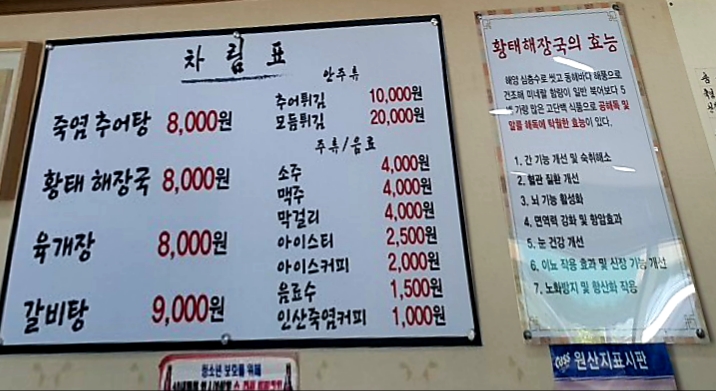 차림표
죽염 추어탕 8,000원
황태 해장국 8,000원
육개장 8,000원
갈비탕 9,000원
안주류
추어튀김 10,000원
모듬튀김 20,000원
주류/음료
소주 4,000원
맥주 4,000원
막걸리 4,000원
아이스티 2,500원
아이스커피 2,000원
음료수 1,500원
인산죽염커피 1,000원
황태해장국의 효능
해양 심층수로 씻고 동해바다 해풍으로
건조해 미네랄 함량이 일반 북어보다 5
배 가량 많은 고단백 식품으로 공해독 및
알콜 해독에 탁월한 효능이 있다.
1. 간 기능 개선 및 숙취해소
2. 혈관 질환 개선
3. 뇌 기능 활성화
4. 면역력 강화 및 항암효과
5. 눈 건강 개선
6. 이뇨 작용 효과 및 신장 기능 개선
7. 노화방지 및 항산화 작용
청소년 보호를 위해
원산지표시판